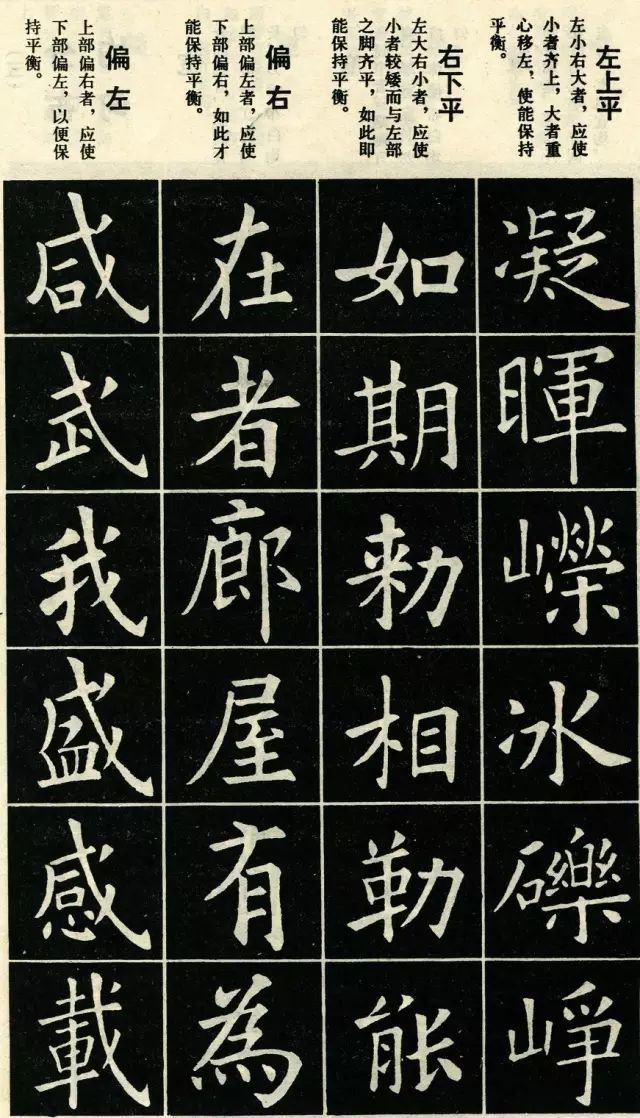 左上平
左小右大者，应使
小者齐上，大者重
心移左，使能保持
平衡。
凝
暉
嶸
冰
礫
崢
右下平
左大右小者，应使
小者较矮而与左部
之脚齐平，如此即
能保持平衡。
如
期
勑
相
勒
能
偏右
上部偏左者，应使
下部偏右，如此才
能保持平衡。
在
者
廊
屋
有
為
偏左
上部偏右者，应使
下部偏左，以便保
持平衡。
咸
武
我
盛
感
載